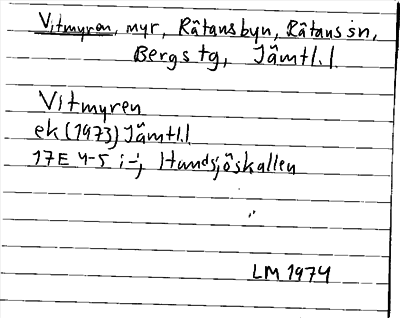 Vitmyren, myr, Råtansbyn, Råtans sn,
Bergs tg, Jämtl.l.
Vitmyren
ek (1973) Jämtl.l
17E 4-5 i-j, Handsjöskallen
LM 1974